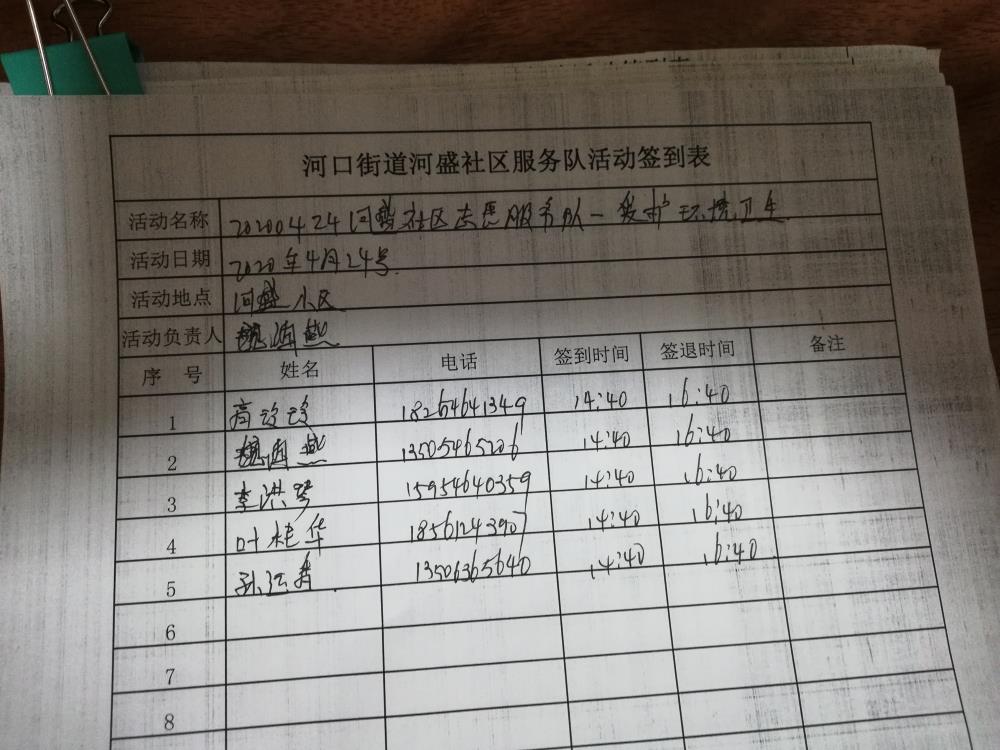 河口街道河盛社区服务队活动签到表
活动名称 20200424河盛社区志愿服务队—爱护环境卫生
活动日期 2020年4月24号
活动地点 河盛小区
活动负责人
序 号 姓名 电话 签到时间 签退时间 备注
1 18264641349 14:40 16:40
2 13505465206 14:40 16:40
3 李洪琴 15954640359 14:40 16:40
4 叶桂华 18561243907 14:40 16:40
5 13506365640 14:40 16:40
6
7
8